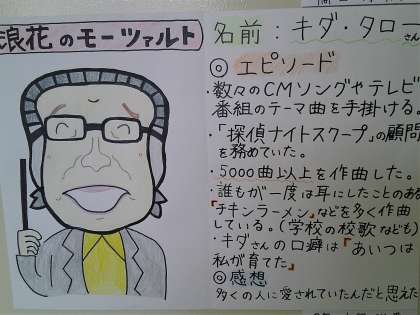 浪花のモーツァルト
名前：キダ・タローさん
◎エピソード
・数々のCMソングやテレビ
番組のテーマ曲を手掛ける。
・「探偵ナイトスクープ」の顧問
を務めていた。
・5000曲以上を作曲した。
・誰もが一度は耳にしたことのある
『チキンラーメン』などを多く作曲
している。(学校の校歌なども)
・キダさんの口癖は『あいつは
私が育てた』
◎感想
多くの人に愛されていたんだと思えた